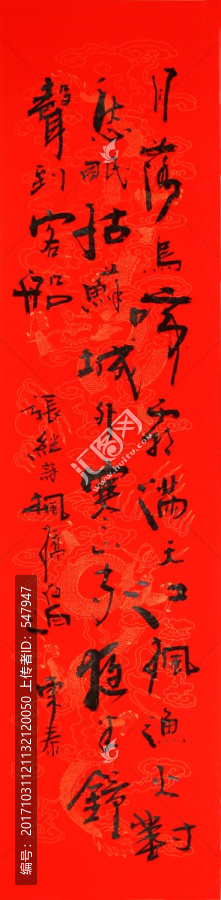 月落烏啼霜滿天江楓漁火對
愁眠姑蘇城外寒山寺夜半鐘
聲到客船
張継詩楓橋夜泊
编号：20171031121132120050 上传者ID：547947
www.huitu.com